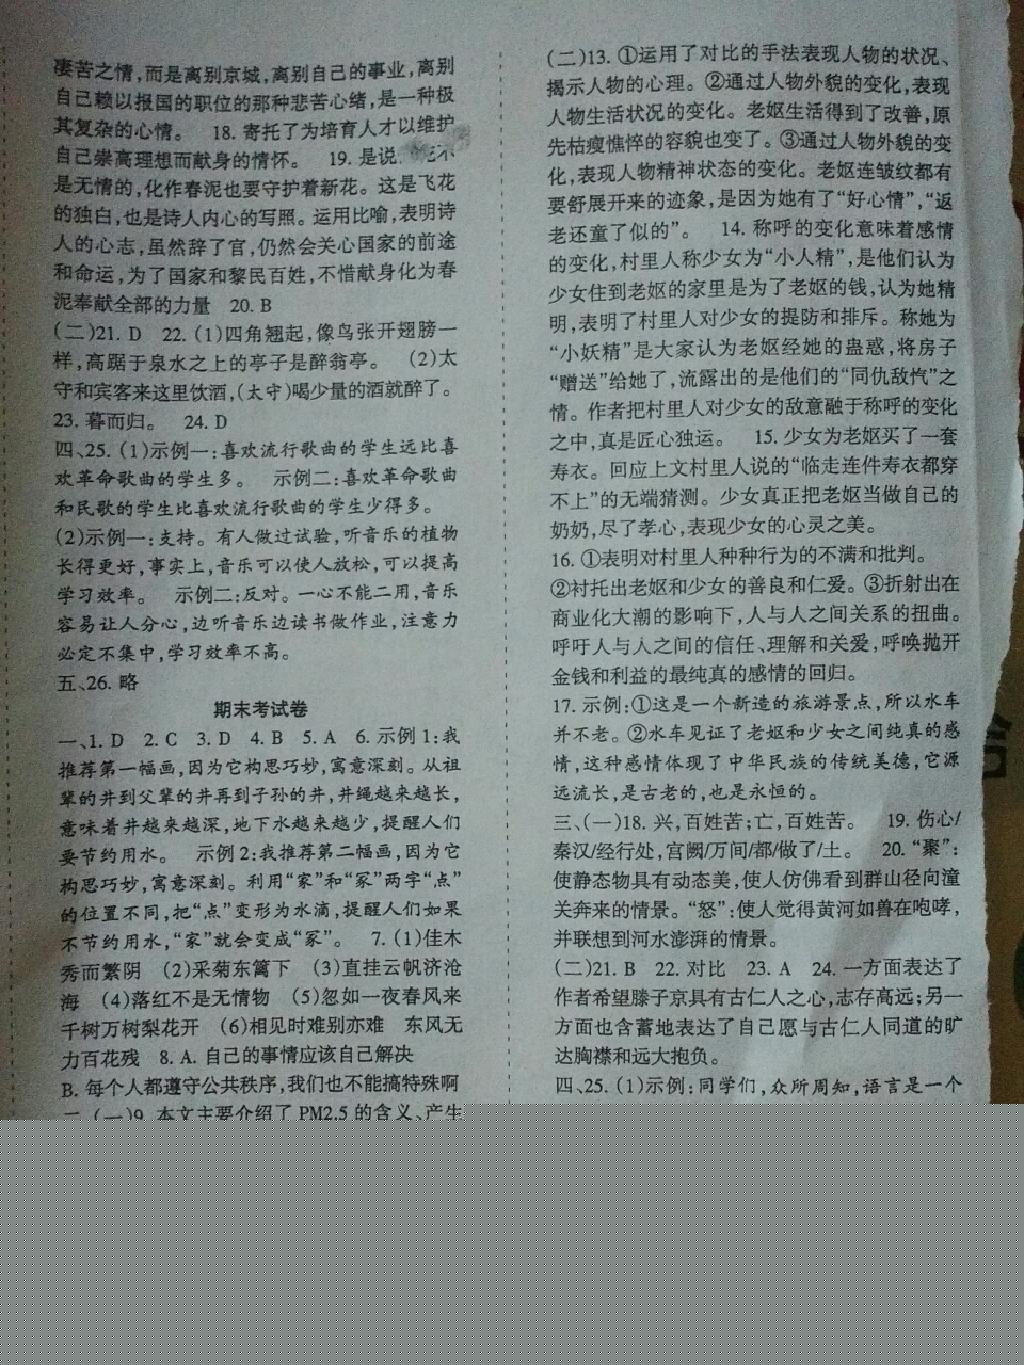 凄苦之情,而是离别京城,离别自己的事业,离别
自己赖以报国的职位的那种悲苦心绪,是一种极
其复杂的心情。 18. 寄托了为培育人才以维护
自己崇高理想而献身的情怀。 19. 是说
是无情的,化作春泥也要守护着新花。这是飞花
的独白,也是诗人内心的写照。运用比喻,表明诗
人的心志,虽然辞了官,仍然会关心国家的前途
和命运,为了国家和黎民百姓,不惜献身化为春
泥奉献全部的力量 20. B
(二)21. D 22. (1)四角翘起,像鸟张开翅膀一
样,高踞于泉水之上的亭子是醉翁亭。 (2)太
守和宾客来这里饮酒,(太守)喝少量的酒就醉了。
23. 暮而归。 24. D
四、25. (1)示例一:喜欢流行歌曲的学生远比喜
欢革命歌曲的学生多。 示例二:喜欢革命歌曲
和民歌的学生比喜欢流行歌曲的学生少得多。
(2)示例一:支持。有人做过试验,听音乐的植物
长得更好,事实上,音乐可以使人放松,可以提高
学习效率。 示例二:反对。一心不能二用,音乐
容易让人分心,边听音乐边读书做作业,注意力
必定不集中,学习效率不高。
五、26. 略
期末考试卷
一、1. D 2. C 3. D 4. B 5. A 6. 示例1:我
推荐第一幅画,因为它构思巧妙,寓意深刻。从祖
辈的井到父辈的井再到子孙的井,井绳越来越长,
意味着井越来越深,地下水越来越少,提醒人们
要节约用水。 示例2:我推荐第二幅画,因为它
构思巧妙,寓意深刻。利用“家”和“冢”两字“点”
的位置不同,把“点”变形为水滴,提醒人们如果
不节约用水,“家”就会变成“冢”。 7. (1)佳木
秀而繁阴 (2)采菊东篱下 (3)直挂云帆济沧
海 (4)落红不是无情物 (5)忽如一夜春风来
千树万树梨花开 (6)相见时难别亦难 东风无
力百花残 8. A. 自己的事情应该自己解决
B. 每个人都遵守公共秩序,我们也不能搞特殊啊
二、(一)9. 本文主要介绍了PM2.5的含义、产生
(二)13. ①运用了对比的手法表现人物的状况、
揭示人物的心理。②通过人物外貌的变化,表现
人物生活状况的变化。老妪生活得到了改善,原
先枯瘦憔悴的容貌也变了。③通过人物外貌的变
化,表现人物精神状态的变化。老妪连皱纹都有
要舒展开来的迹象,是因为她有了“好心情”,“返
老还童了似的”。 14. 称呼的变化意味着感情
的变化,村里人称少女为“小人精”,是他们认为
少女住到老妪的家里是为了老妪的钱,认为她精
明,表明了村里人对少女的提防和排斥。称她为
“小妖精”是大家认为老妪经她的蛊惑,将房子
“赠送”给她了,流露出的是他们的“同仇敌忾”之
情。作者把村里人对少女的敌意融于称呼的变化
之中,真是匠心独运。 15. 少女为老妪买了一套
寿衣。回应上文村里人说的“临走连件寿衣都穿
不上”的无端猜测。少女真正把老妪当做自己的
奶奶,尽了孝心,表现少女的心灵之美。
16. ①表明对村里人种种行为的不满和批判。
②衬托出老妪和少女的善良和仁爱。③折射出在
商业化大潮的影响下,人与人之间关系的扭曲。
呼吁人与人之间的信任、理解和关爱,呼唤抛开
金钱和利益的最纯真的感情的回归。
17. 示例:①这是一个新造的旅游景点,所以水车
并不老。②水车见证了老妪和少女之间纯真的感
情,这种感情体现了中华民族的传统美德,它源
远流长,是古老的,也是永恒的。
三、(一)18. 兴,百姓苦;亡,百姓苦。 19. 伤心/
秦汉/经行处,宫阙/万间/都/做了/土。 20. “聚”:
使静态物具有动态美,使人仿佛看到群山径向潼
关奔来的情景。“怒”:使人觉得黄河如兽在咆哮,
并联想到河水澎湃的情景。
(二)21. B 22. 对比 23. A 24. 一方面表达了
作者希望滕子京具有古仁人之心,志存高远;另一
方面也含蓄地表达了自己愿与古仁人同道的旷
达胸襟和远大抱负。
四、25. (1)示例:同学们,众所周知,语言是一个